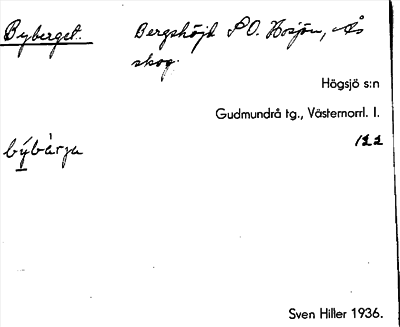 Byberget. Bergshöjd SO. Hosjön, Ås
skog.
Högsjö s:n
Gudmundrå tg., Västernorrl. l.
122
býbàrja
Sven Hiller 1936.